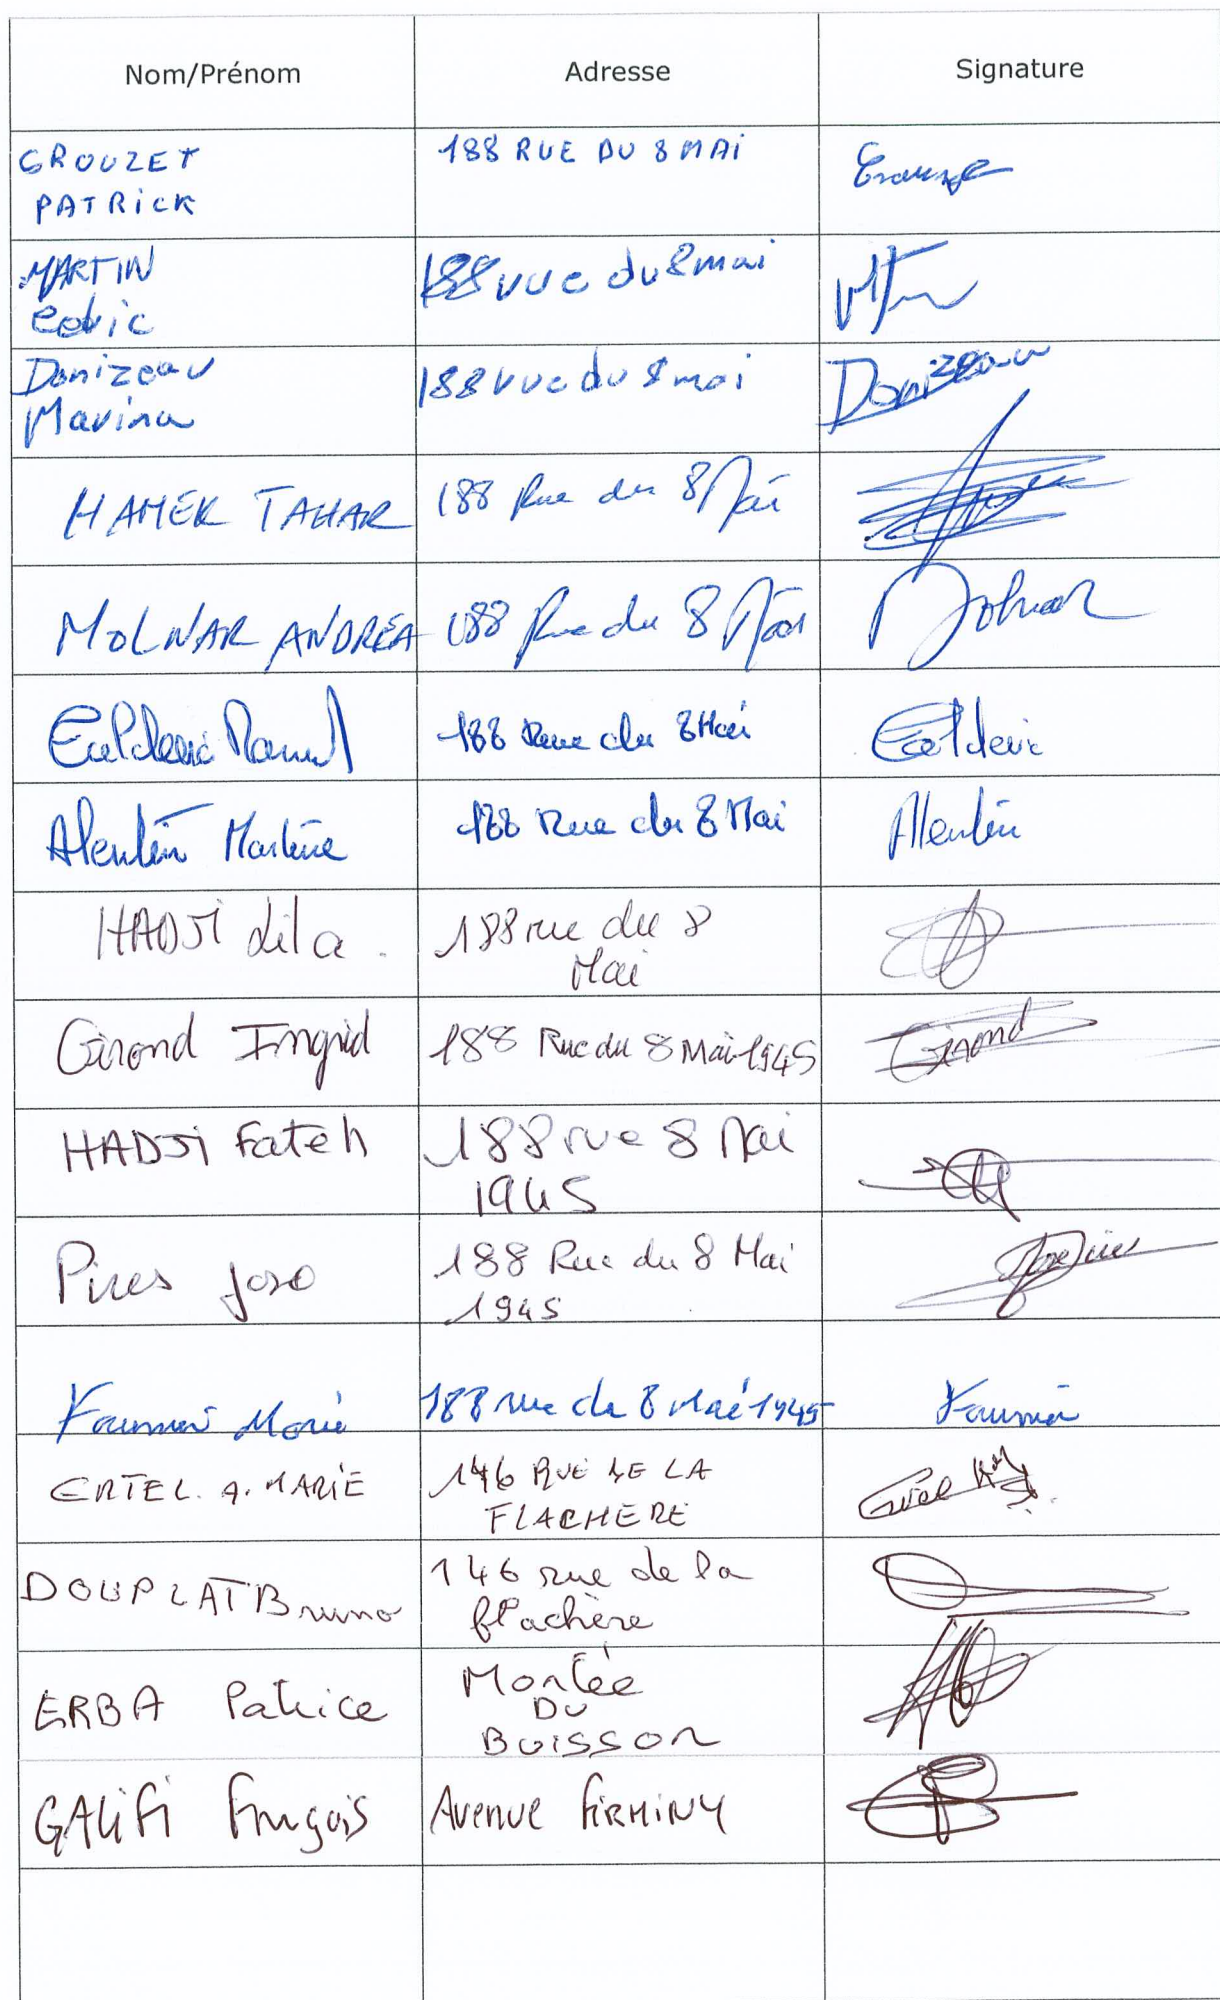 Nom/Prénom Adresse Signature
GROUZET 188 RUE DU 8 MAi
PATRicK
MARTIN 188 rue du 8 mai
Cedric
Donizeau 188 rue du 8 mai Donizeau
Marina
HAMEK TAHAR 188 Rue du 8 Mai
MOLNAR ANDREA 188 Rue du 8 Mai Molnar
188 Rue du 8 Mai
Alentin Martine 188 Rue du 8 Mai Alentin
HADJi Lila 188 rue du 8
Mai
Girond Ingrid 188 Rue du 8 Mai 1945 Girond
HADJi Fateh 188 rue 8 Mai
1945
Pires Jose 188 Rue du 8 Mai
1945
Fournier Marie 188 rue du 8 Mai 1945 Fournier
ERTEL. A. MARIE 146 RUE DE LA
FLACHERE
DOUPLAT Bruno 146 rue de la
flachère
ERBA Patrice Montée
DU
BUISSON
GALiFi François Avenue FiRMiNY